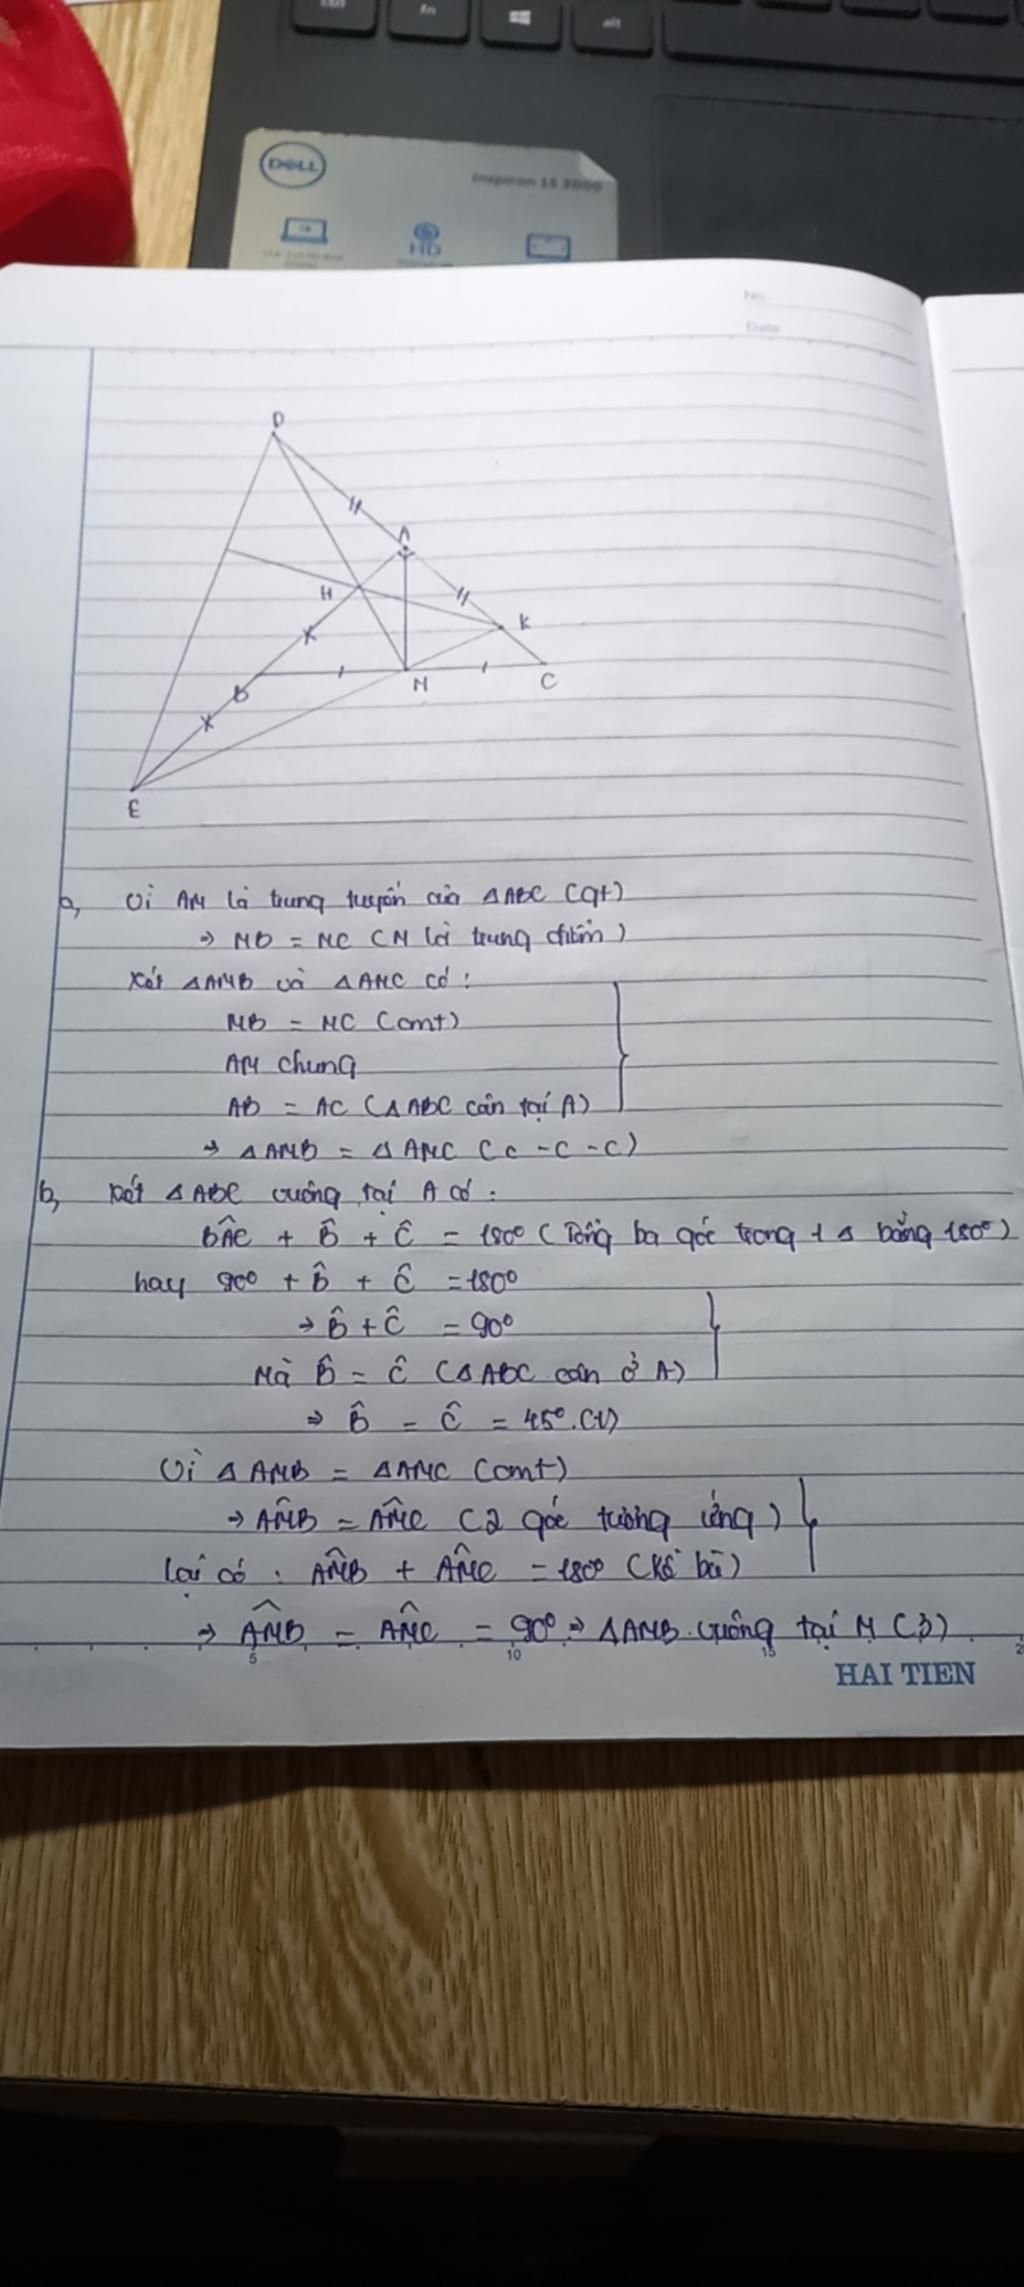 fn
alt
DELL
Inspiron 15 3000
HD
No.
Date
D
A
H
K
B
M
C
E
a, Vì AM là trung tuyến của △ABC (gt)
⇒ MB = MC (M là trung điểm)
Xét △AMB và △AMC có:
MB = MC (cmt)
AM chung
AB = AC (△ABC cân tại A)
⇒ △AMB = △AMC (c-c-c)
b, Xét △ABC vuông tại A có:
BÂC + B̂ + Ĉ = 180° (Tổng ba góc trong 1 △ bằng 180°)
hay 90° + B̂ + Ĉ = 180°
⇒ B̂ + Ĉ = 90°
Mà B̂ = Ĉ (△ABC cân ở A)
⇒ B̂ = Ĉ = 45°. (1)
Vì △AMB = △AMC (cmt)
⇒ AM̂B = AM̂C (2 góc tương ứng)
lại có: AM̂B + AM̂C = 180° (kề bù)
⇒ AM̂B = AM̂C = 90° ⇒ △AMB vuông tại M (3)
5 10 15
HAI TIEN